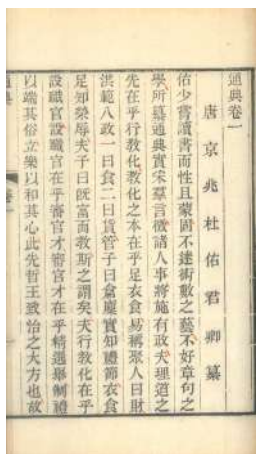 通典卷一
唐京兆杜佑君卿纂
佑少嘗讀書而性且蒙固不達術數之藝不好章句之
學所纂通典實采羣言徵諸人事將施有政夫理道之
先在乎行教化教化之本在乎足衣食易稱聚人曰財
洪範八政一曰食二曰貨管子曰倉廩實知禮節衣食
足知榮辱夫子曰既富而教斯之謂矣夫行教化在乎
設職官設職官在乎審官才審官才在乎精選舉制禮
以端其俗立樂以和其心此先哲王致治之大方也故